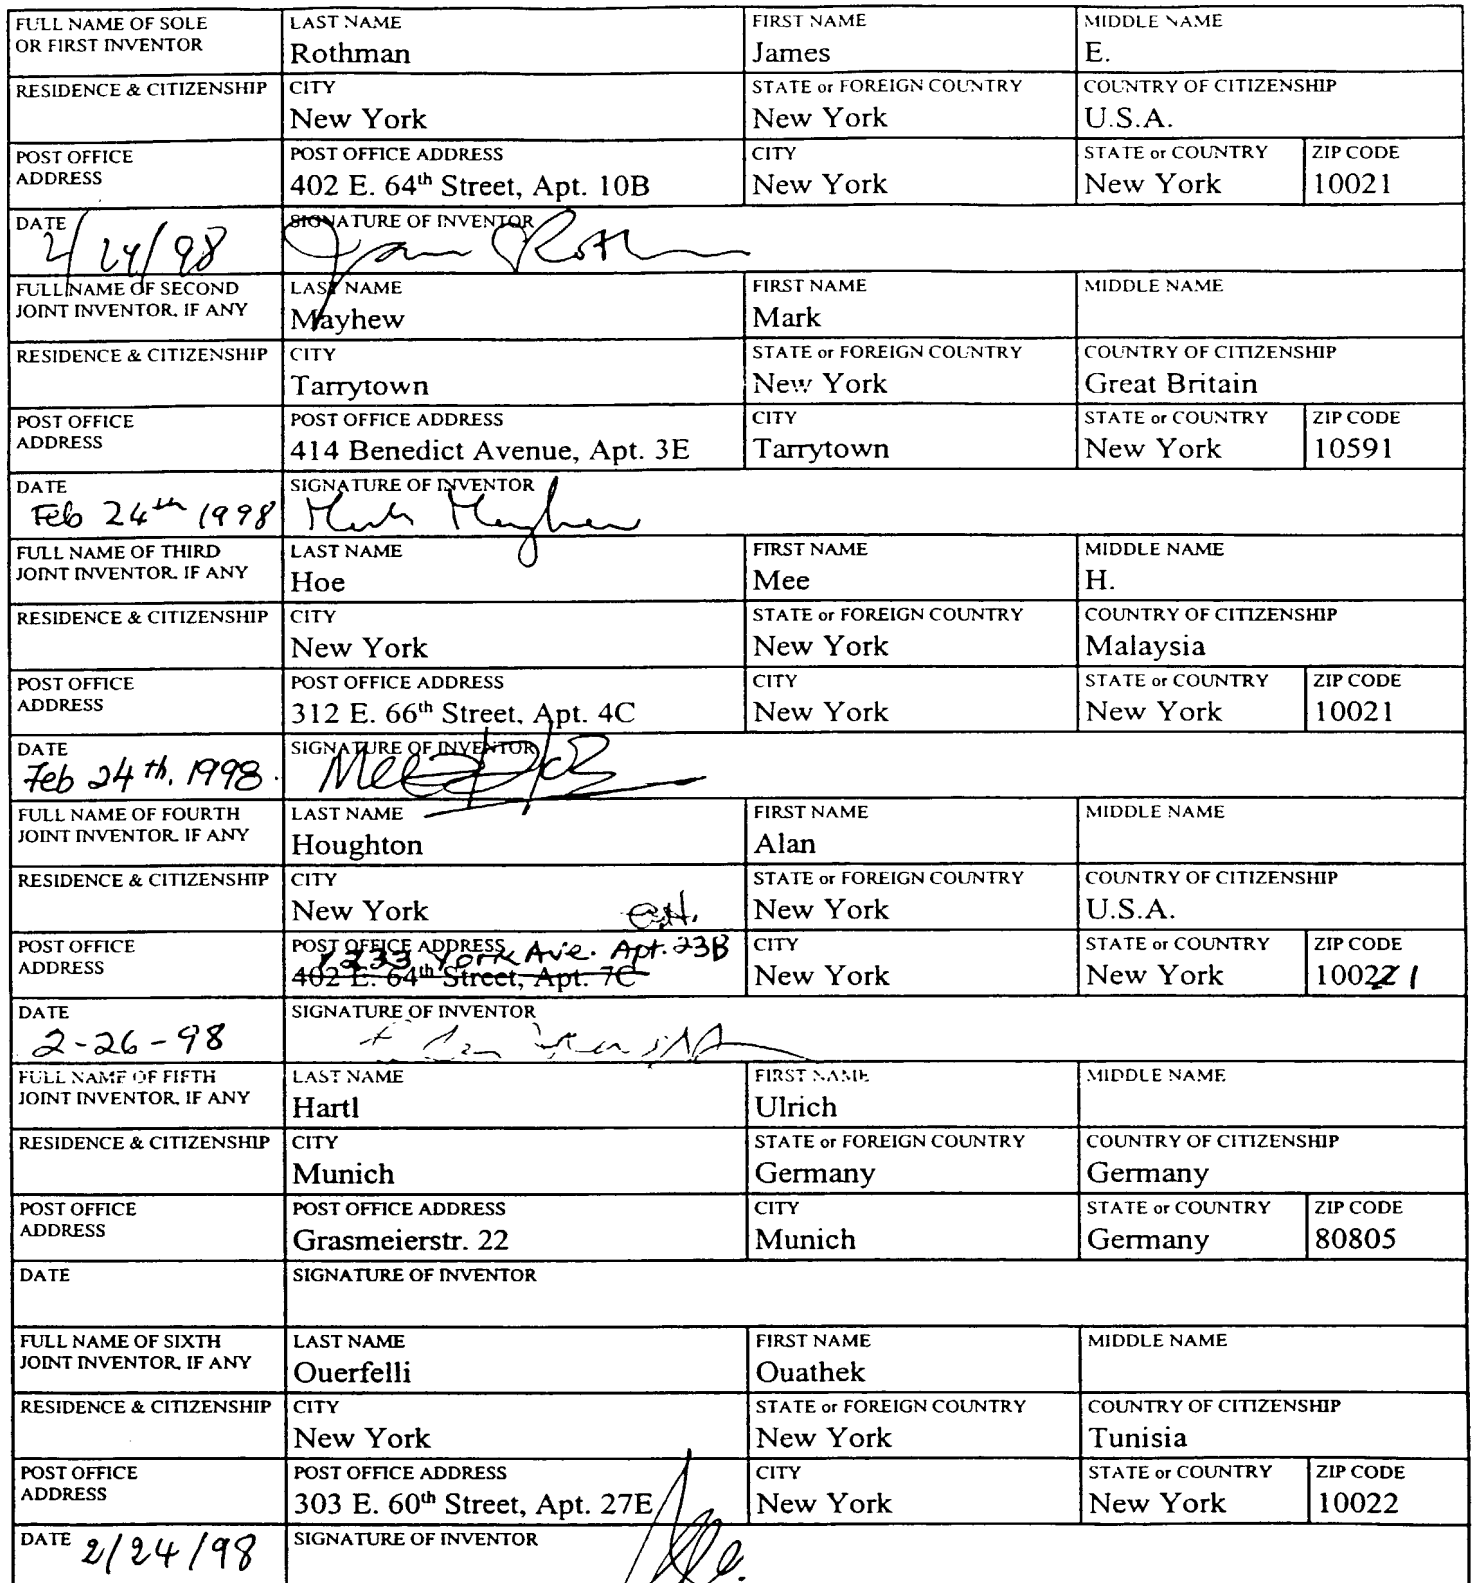 FULL NAME OF SOLE OR FIRST INVENTOR
LAST NAME
Rothman
FIRST NAME
James
MIDDLE NAME
E.
RESIDENCE & CITIZENSHIP
CITY
New York
STATE or FOREIGN COUNTRY
New York
COUNTRY OF CITIZENSHIP
U.S.A.
POST OFFICE
ADDRESS
POST OFFICE ADDRESS
402 E. 64th Street, Apt. 10B
CITY
New York
STATE or COUNTRY
New York
ZIP CODE
10021
DATE
2/24/98
SIGNATURE OF INVENTOR
FULL NAME OF SECOND
JOINT INVENTOR, IF ANY
LAST NAME
Mayhew
FIRST NAME
Mark
MIDDLE NAME
RESIDENCE & CITIZENSHIP
CITY
Tarrytown
STATE or FOREIGN COUNTRY
New York
COUNTRY OF CITIZENSHIP
Great Britain
POST OFFICE
ADDRESS
POST OFFICE ADDRESS
414 Benedict Avenue, Apt. 3E
CITY
Tarrytown
STATE or COUNTRY
New York
ZIP CODE
10591
DATE
Feb 24th 1998
SIGNATURE OF INVENTOR
Mark Mayhew
FULL NAME OF THIRD
JOINT INVENTOR, IF ANY
LAST NAME
Hoe
FIRST NAME
Mee
MIDDLE NAME
H.
RESIDENCE & CITIZENSHIP
CITY
New York
STATE or FOREIGN COUNTRY
New York
COUNTRY OF CITIZENSHIP
Malaysia
POST OFFICE
ADDRESS
POST OFFICE ADDRESS
312 E. 66th Street, Apt. 4C
CITY
New York
STATE or COUNTRY
New York
ZIP CODE
10021
DATE
Feb 24th, 1998.
SIGNATURE OF INVENTOR
FULL NAME OF FOURTH
JOINT INVENTOR, IF ANY
LAST NAME
Houghton
FIRST NAME
Alan
MIDDLE NAME
RESIDENCE & CITIZENSHIP
CITY
New York
STATE or FOREIGN COUNTRY
New York
COUNTRY OF CITIZENSHIP
U.S.A.
POST OFFICE
ADDRESS
POST OFFICE ADDRESS
1233 York Ave. Apt. 23B
402 E. 64th Street, Apt. 7C
CITY
New York
STATE or COUNTRY
New York
ZIP CODE
10021
DATE
2-26-98
SIGNATURE OF INVENTOR
FULL NAME OF FIFTH
JOINT INVENTOR, IF ANY
LAST NAME
Hartl
FIRST NAME
Ulrich
MIDDLE NAME
RESIDENCE & CITIZENSHIP
CITY
Munich
STATE or FOREIGN COUNTRY
Germany
COUNTRY OF CITIZENSHIP
Germany
POST OFFICE
ADDRESS
POST OFFICE ADDRESS
Grasmeierstr. 22
CITY
Munich
STATE or COUNTRY
Germany
ZIP CODE
80805
DATE
SIGNATURE OF INVENTOR
FULL NAME OF SIXTH
JOINT INVENTOR, IF ANY
LAST NAME
Ouerfelli
FIRST NAME
Ouathek
MIDDLE NAME
RESIDENCE & CITIZENSHIP
CITY
New York
STATE or FOREIGN COUNTRY
New York
COUNTRY OF CITIZENSHIP
Tunisia
POST OFFICE
ADDRESS
POST OFFICE ADDRESS
303 E. 60th Street, Apt. 27E
CITY
New York
STATE or COUNTRY
New York
ZIP CODE
10022
DATE 2/24/98
SIGNATURE OF INVENTOR